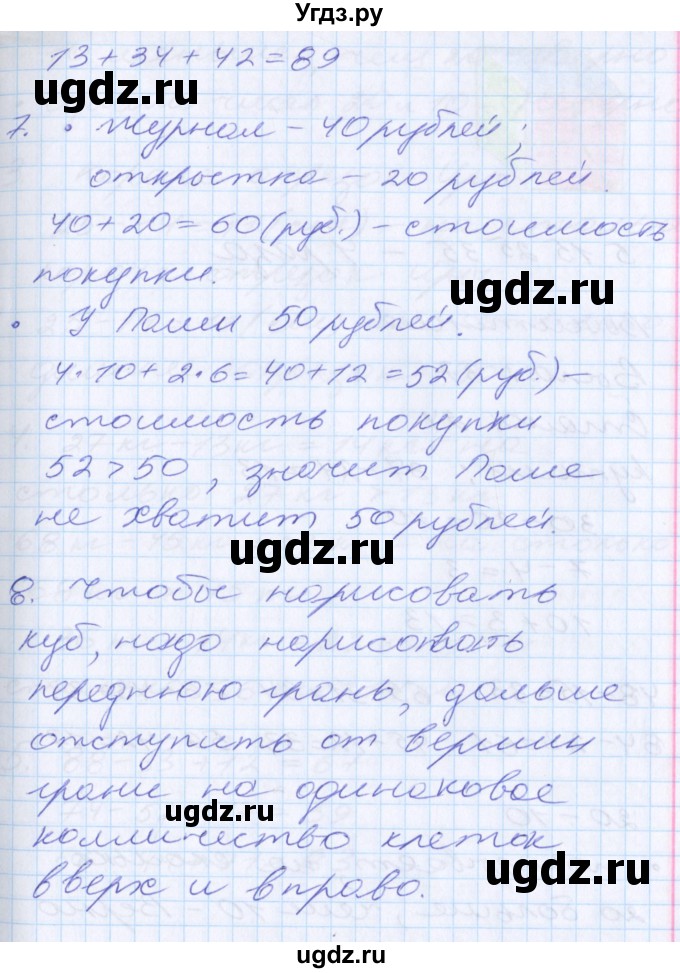 Угдз.ру
13+34+42=89
ugdz.ru
7. • Журнал – 40 рублей;
открытка – 20 рублей.
40+20=60(руб.) – стоимость
покупки.
ugdz.ru
• У Паши 50 рублей.
4·10+2·6=40+12=52(руб.) –
стоимость покупки
52>50, значит Паше
не хватит 50 рублей.
ugdz.ru
8. Чтобы нарисовать
куб, надо нарисовать
переднюю грань, дальше
отступить от вершин
грани на одинаковое
ugdz.ru
колличество клеток
ugdz.ru
вверх и вправо.
ugdz.ru